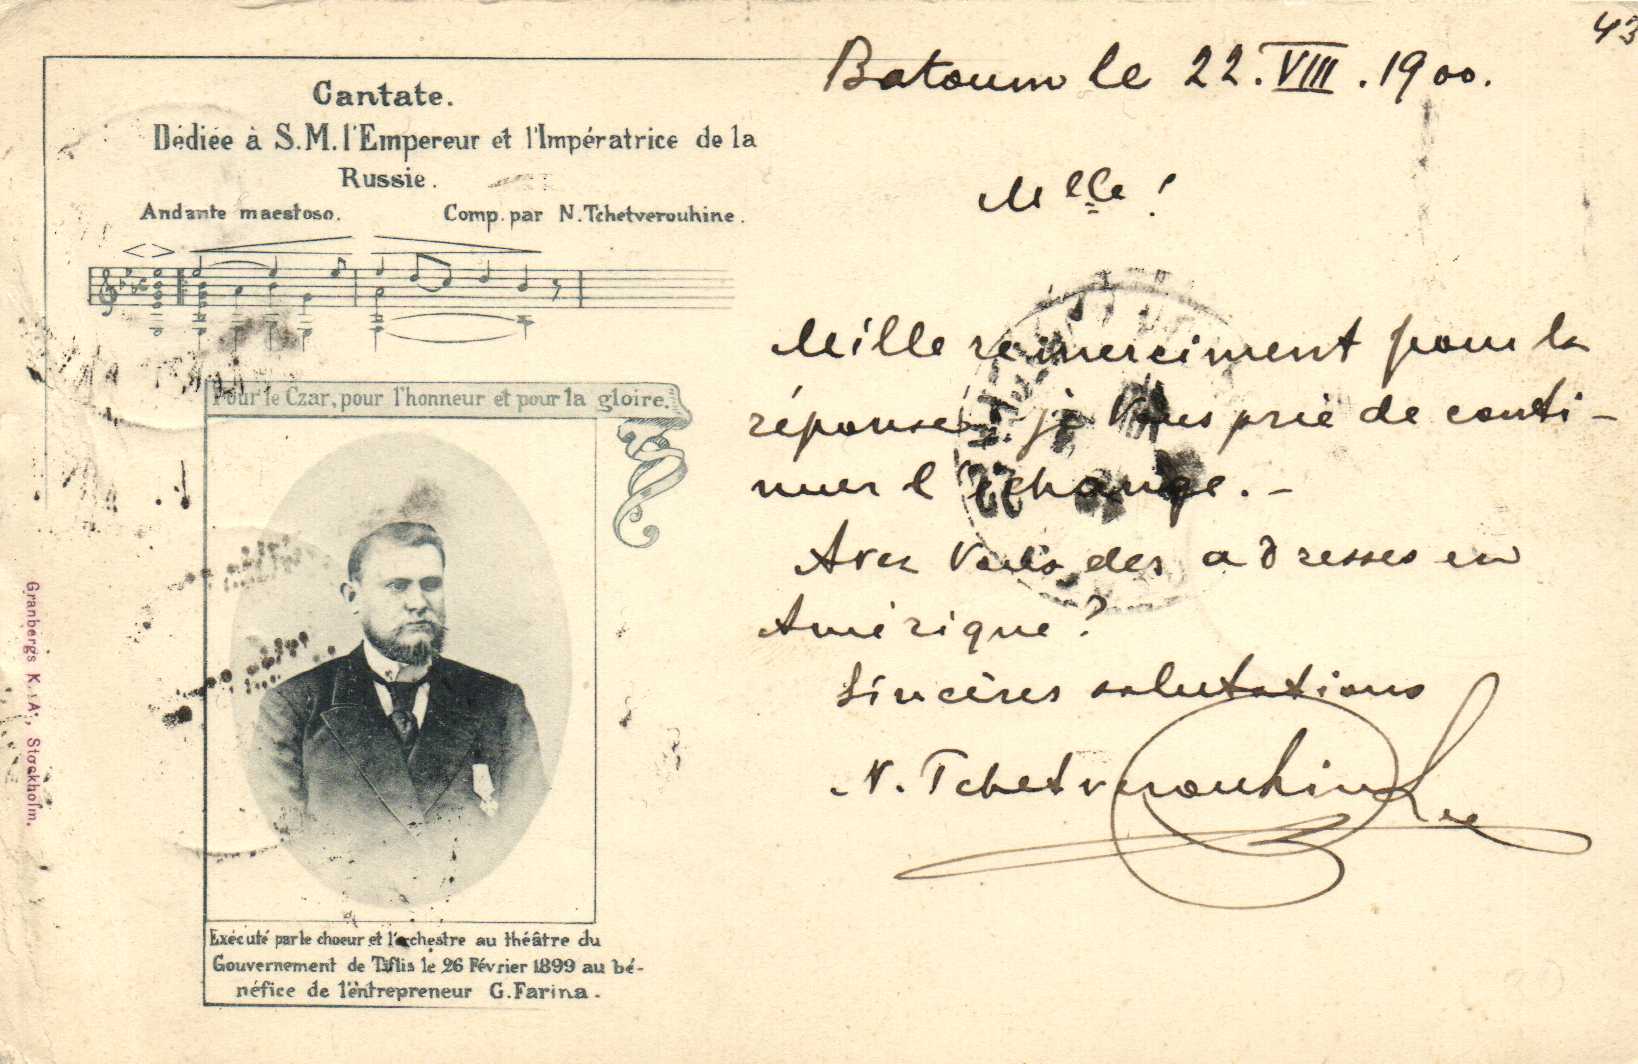 43
Cantate.
Dédiée à S.M. l'Empereur et l'Impératrice de la
Russie.
Andante maestoso. Comp. par N. Tchetverouhine.
Pour le Czar, pour l'honneur et pour la gloire.
Exécuté par le choeur et l'orchestre au théâtre du
Gouvernement de Tiflis le 26 Février 1899 au bé-
néfice de l'entrepreneur G. Farina.
Granbergs K.-A., Stockholm.
Batoum le 22. VIII. 1900.
Mlle!
Mille remerciment pour la
réponse, je Vous prie de conti-
nuer l'échange. -
Avez Vous des adresses en
Amérique?
Sincères salutations
N. Tchetverouhine